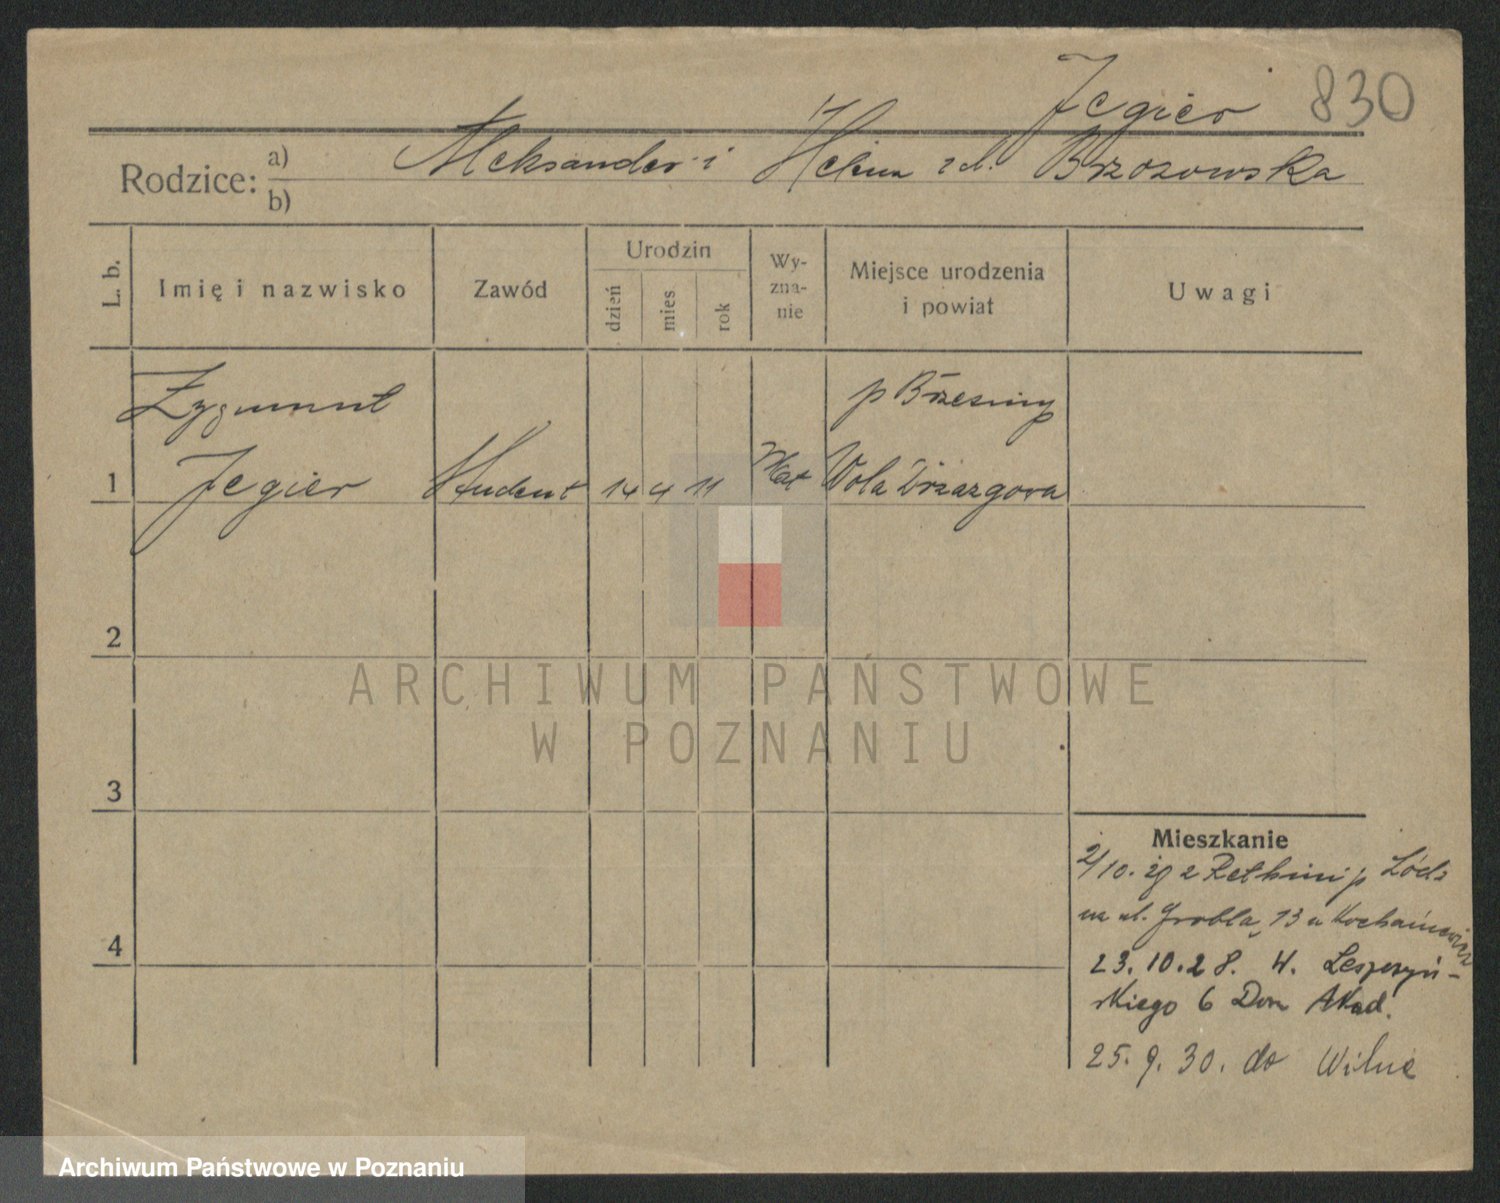 Jegier 830
Rodzice: a) Aleksander i Helena z d. Brzozowska
b)
L. b. Imię i nazwisko Zawód Urodzin dzień mies. rok Wyznanie Miejsce urodzenia i powiat Uwagi
Zygmunt p Brzeziny
1 Jegier Student 14 4 11 Kat Wola
2
3
4
Mieszkanie
2/10. z Retkini p Łódź
na ul. Grobla, 13 u
23.10.28.
skiego 6 Dom Akad.
25. 9. 30. do Wilna
ARCHIWUM PAŃSTWOWE
W POZNANIU
Archiwum Państwowe w Poznaniu